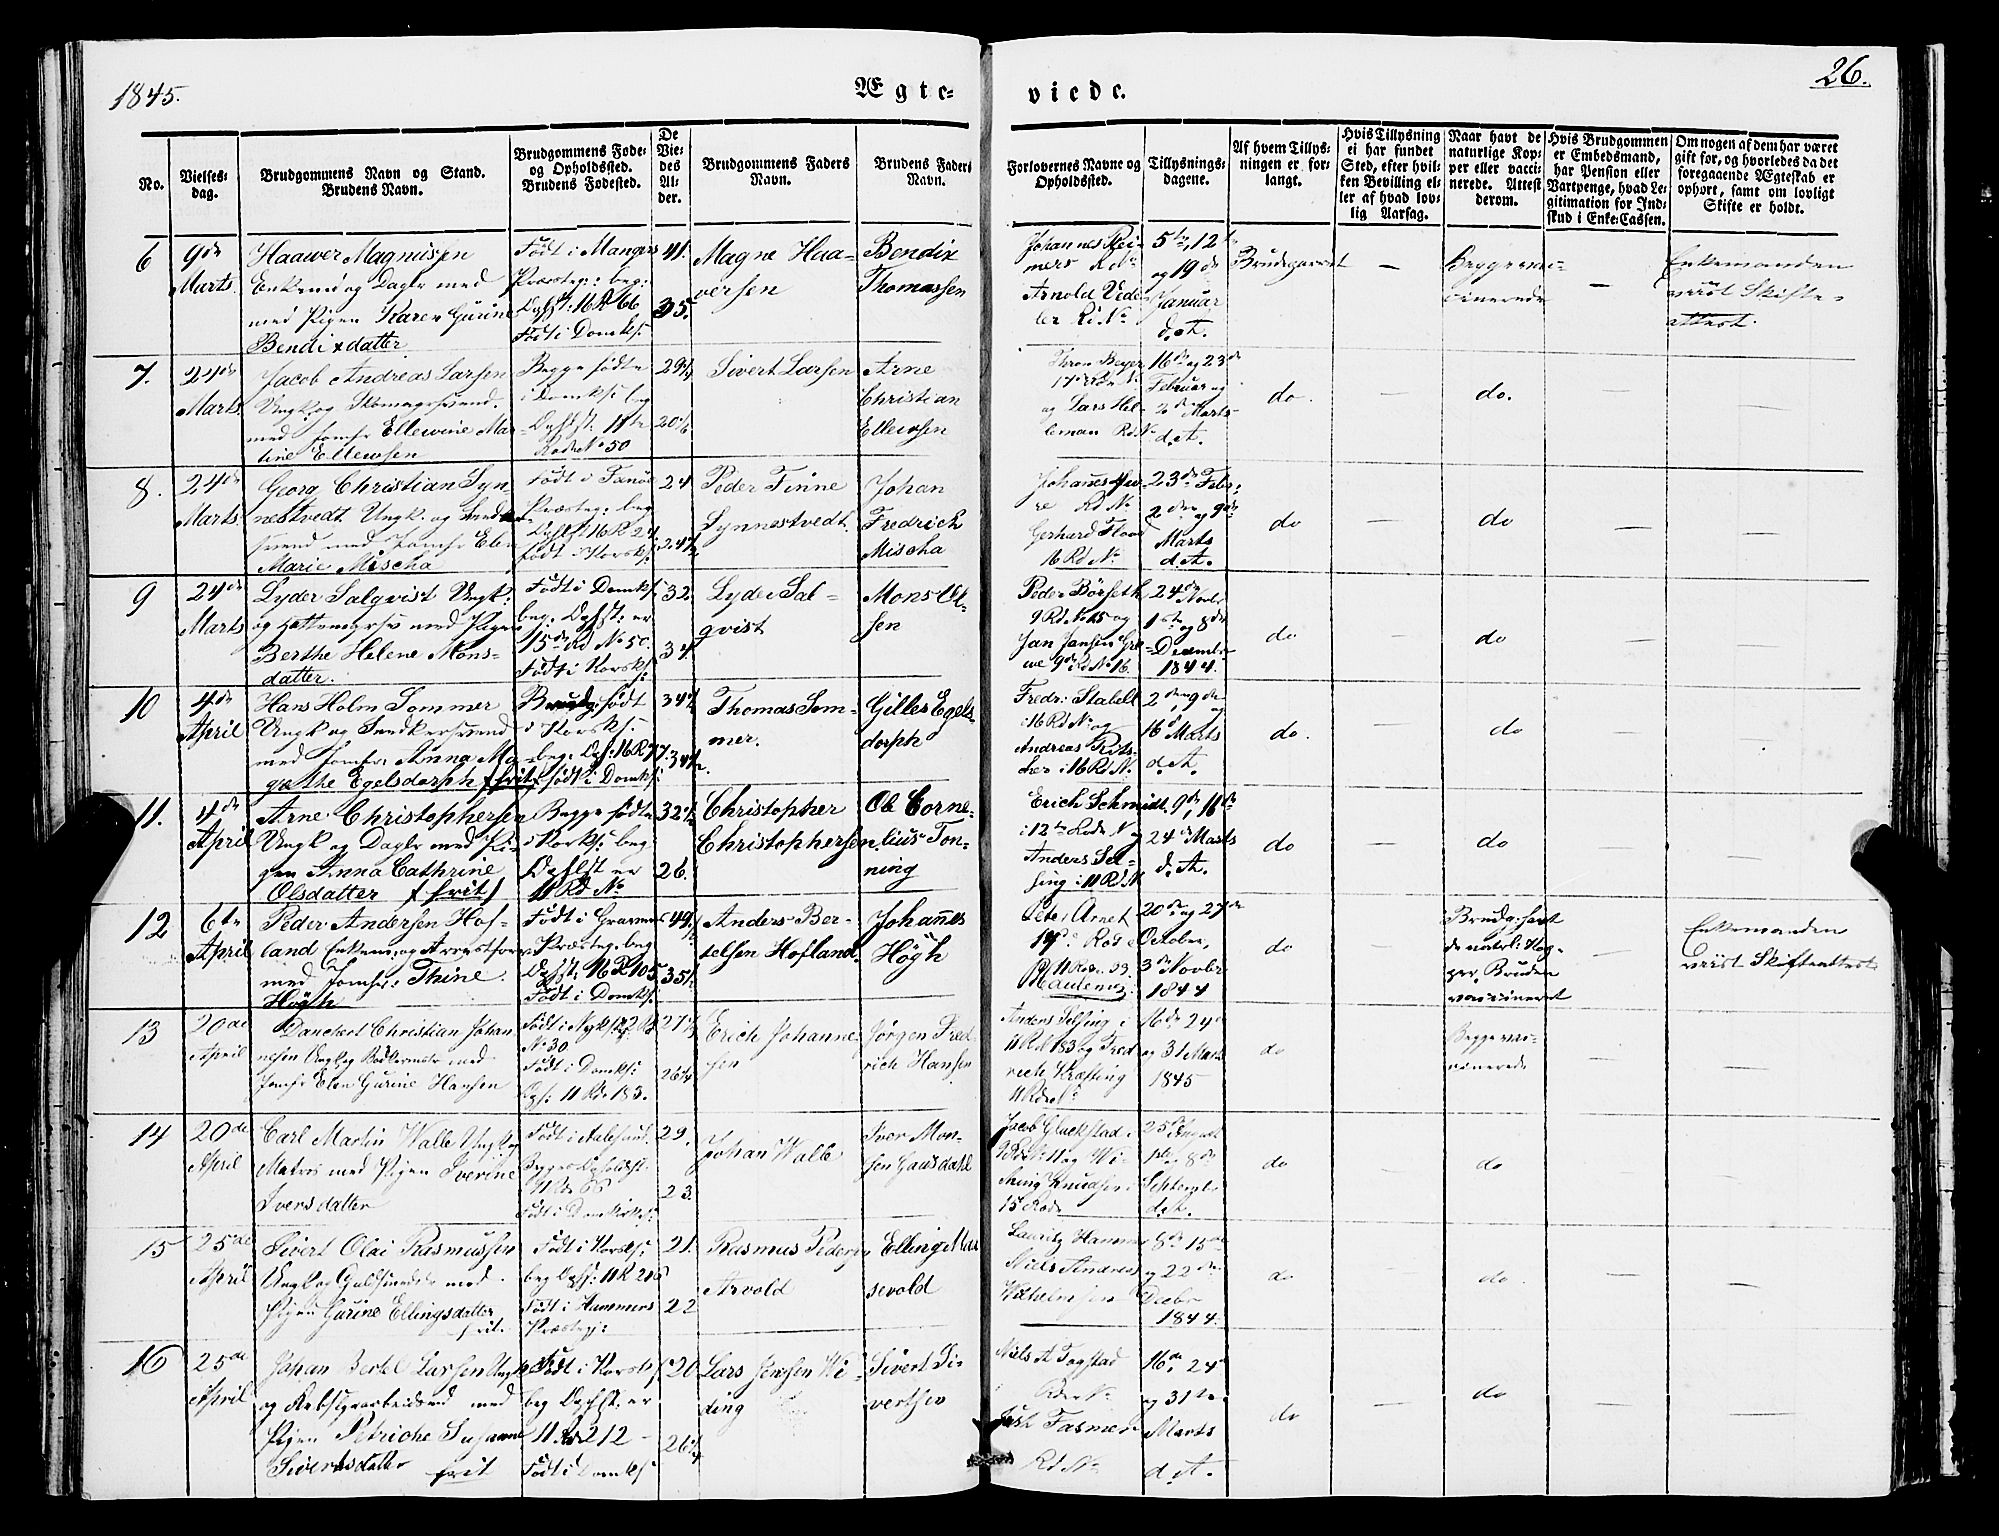 1845.
Ægte-
viede.
26.
No.
Vielses-
dag.
Brudgommens Navn og Stand.
Brudens Navn.
Brudgommens Føde-
og Opholdssted.
Brudens Fødested.
De
Vie-
des
Al-
der.
Brudgommens Faders
Navn.
Brudens Faders
Navn.
Forlovernes Navne og
Opholdssted.
Tillysnings-
dagene.
Af hvem Tillys-
ningen er for-
langt.
Hvis Tillysning
ei har fundet
Sted, efter hvil-
ken Bevilling el-
ler af hvad lov-
lig Aarsag.
Naar havt de
naturlige Kop-
per eller vacci-
nerede. Attest
derom.
Hvis Brudgommen
er Embedsmand,
har Pension eller
Vartpenge, hvad Le-
gitimation for Ind-
skud i Enke-Cassen.
Om nogen af dem har været
gift før, og hvorledes da det
foregaaende Ægteskab er
ophørt, samt om lovligt
Skifte er holdt.
6
9de
Marts.
Haawer Magnussen
Enkemd og Dagkr med
med Pigen Karen Gurine
Bendixdatter
Født i Mangers
Præsteg: beg:
Ophst: 16 R 66
Født i Domks:
41.
35.
Magne Haa-
versen
Bendix
Thomassen
Johannes Rei-
mers Rd No
Arnold Vede-
ler Rd No
5te, 12te
og 19de
Januar
d. A.
Brudeparret
—
Begge vac-
cinerede
—
Enkemanden
viist Skifte-
attest.
7.
24de
Marts
Jacob Andreas Larsen
Ungk og Skomagersvend
med Jomfr Ellewine Mar-
tine Ellewsen
Begge fødte
i Domks: beg
Ophst: 11te
Rode No 50
29½
20½
Sivert Larsen
Arne
Christian
Ellewsen
og Lars Hel-
leman Rd No
16de og 23de
Februar og
2den Marts
d. A.
do.
—
do.
—
8.
24de
Marts
Georg Christian Syn-
nestvedt Ungk: og Smed-
svend med Jomfr Elen
Marie Mischa
Født i Fanøe
Præsteg: beg
Ophst 16 R 24
født i Korsk:
24
24½
Peder Finne
Synnestvedt.
Johan
Fredrich
Mischa
re Rd No
Gerhard Flood
16 Rd No
23de Febr:
2den og 9de
Marts
d. A.
do
—
do
—
—
9
24de
Marts
Lyder Salqvist Ungk:
og Hattemgrsv med Pigen
Berthe Helene Mons-
datter.
Født i Domks
beg: Ophst: er
15de Rd No 50.
Født i Korsk:
32.
34.
Lyder Sal-
qvist
Mons Ol-
sen
Peder Börseth
9 Rd No 15 og
Jan Jansen Gre-
we 9de Rd No 16.
24de Novb,
1ste og 8de
Decembr
1844.
do
—
do
—
—
10
4de
April
Hans Holm Sommer
Ungk og Snedkersvend
med Jomfr: Anna Ma-
grethe Egelsdorph (frit)
Brudg: født
i Korsk:
beg: Oph: 16 R 77.
født i Domks
34½
34½.
Thomas Som-
mer.
Gilles Egels-
dorph
Fredr: Stabell
i 16 Rd No og
Andreas Rits-
cher i 16 Rd N.
2den, 9de og
16de Marts
d. A.
do.
—
do
—
—
11.
4de
April
Arne Christophersen
Ungk og Dagkr med Pi-
gen Anna Cathrine
Olsdatter (frit)
Begge fødte
i Korsk: beg
Ophst er
11 Rd No
32½
26.
Christopher
Christophersen
Ole Corne-
lius Ton-
ning
Erich Schmidt
i 12te Rode N og
Anders Sel-
fing i 11 Rd N
9de, 16de
24de Marts
d. A.
do
—
do
—
—
12
6te
April
Peder Andersen Hof-
land Enkem: og Arrestfor
med Jomfr: Thine
Högh
Født i Gravens
Præsteg: beg
Ophst: 16 R 105
Født i Domks:
49½
35½
Anders Ber-
telsen Hofland.
Johannes
Högh
Peter Arnet
20de og 27de
October,
3de Novbr
1844
do
—
Brudg: havt
de naturl: Kop-
per, Bruden
vaccineret
—
Enkemanden
viist Skifteattest
13
20de
April
Danckert Christian Johan-
nesen Ungk og Bødkermstr med
Jomfr Elen Gurine Hansen
Født i Nyk: 12 Rd
No 30
Født i Domks:
Ops: 11 Rd 183.
27½
26¼
Erich Johanne-
sen
Jørgen Fred-
rich Hansen
Anders Selfing i
11 Rd 183 og Fred-
rich Kræfting
11 Rde No
16de 24de
og 31 Marts
1845
do
—
Begge vac-
cinerede
—
—
14
20de
April
Carl Martin Walle Ungk og
Matros med Pigen Iverine
Iversdatter
Født i Aalesund.
Begges Opholdsst:
11 Rd 66
Født i Domkirkes:
29.
23.
Johan Walle
Iver Mon-
sen Gausdahl
Jacob Gluckstad i
ning Knudsen i
15 Rode
25de August
1ste og 8de
Septembr
d. A.
do
—
do
—
—
15
25de
April
Sivert Olai Rasmussen
Ungk og Guldsmedsv med
Pigen Gurine Ellingsdatter
frit.
Født i Korsk:
beg Ophs: 11 R 206
Født i Hammers
Præsteg:
21.
22
Rasmus Peders
Arvold
Elling Mas
sevold
Lauritz Hammer
Niels Andreas
Wilhelmsen
8de 15de
og 22de
Decbr
1844.
do
—
do.
—
—
16
25de
April
Johan Bertel Larsen Ungk
og Rebslgrarbeidsmd med
Pigen Petriche Susanne
Sivertsdatter frit
Født i Korsk:
beg Ophst: er
11 Rd 212 -
Født i Domks:
20
26¼
Lars Jensen Wi-
ding
Sivert Si-
vertsen
Niels A Fogstad
Rde No
Just Fasmer
Rd No
16de, 24de
og 31te
Marts
d. A.
do
—
do
—
—